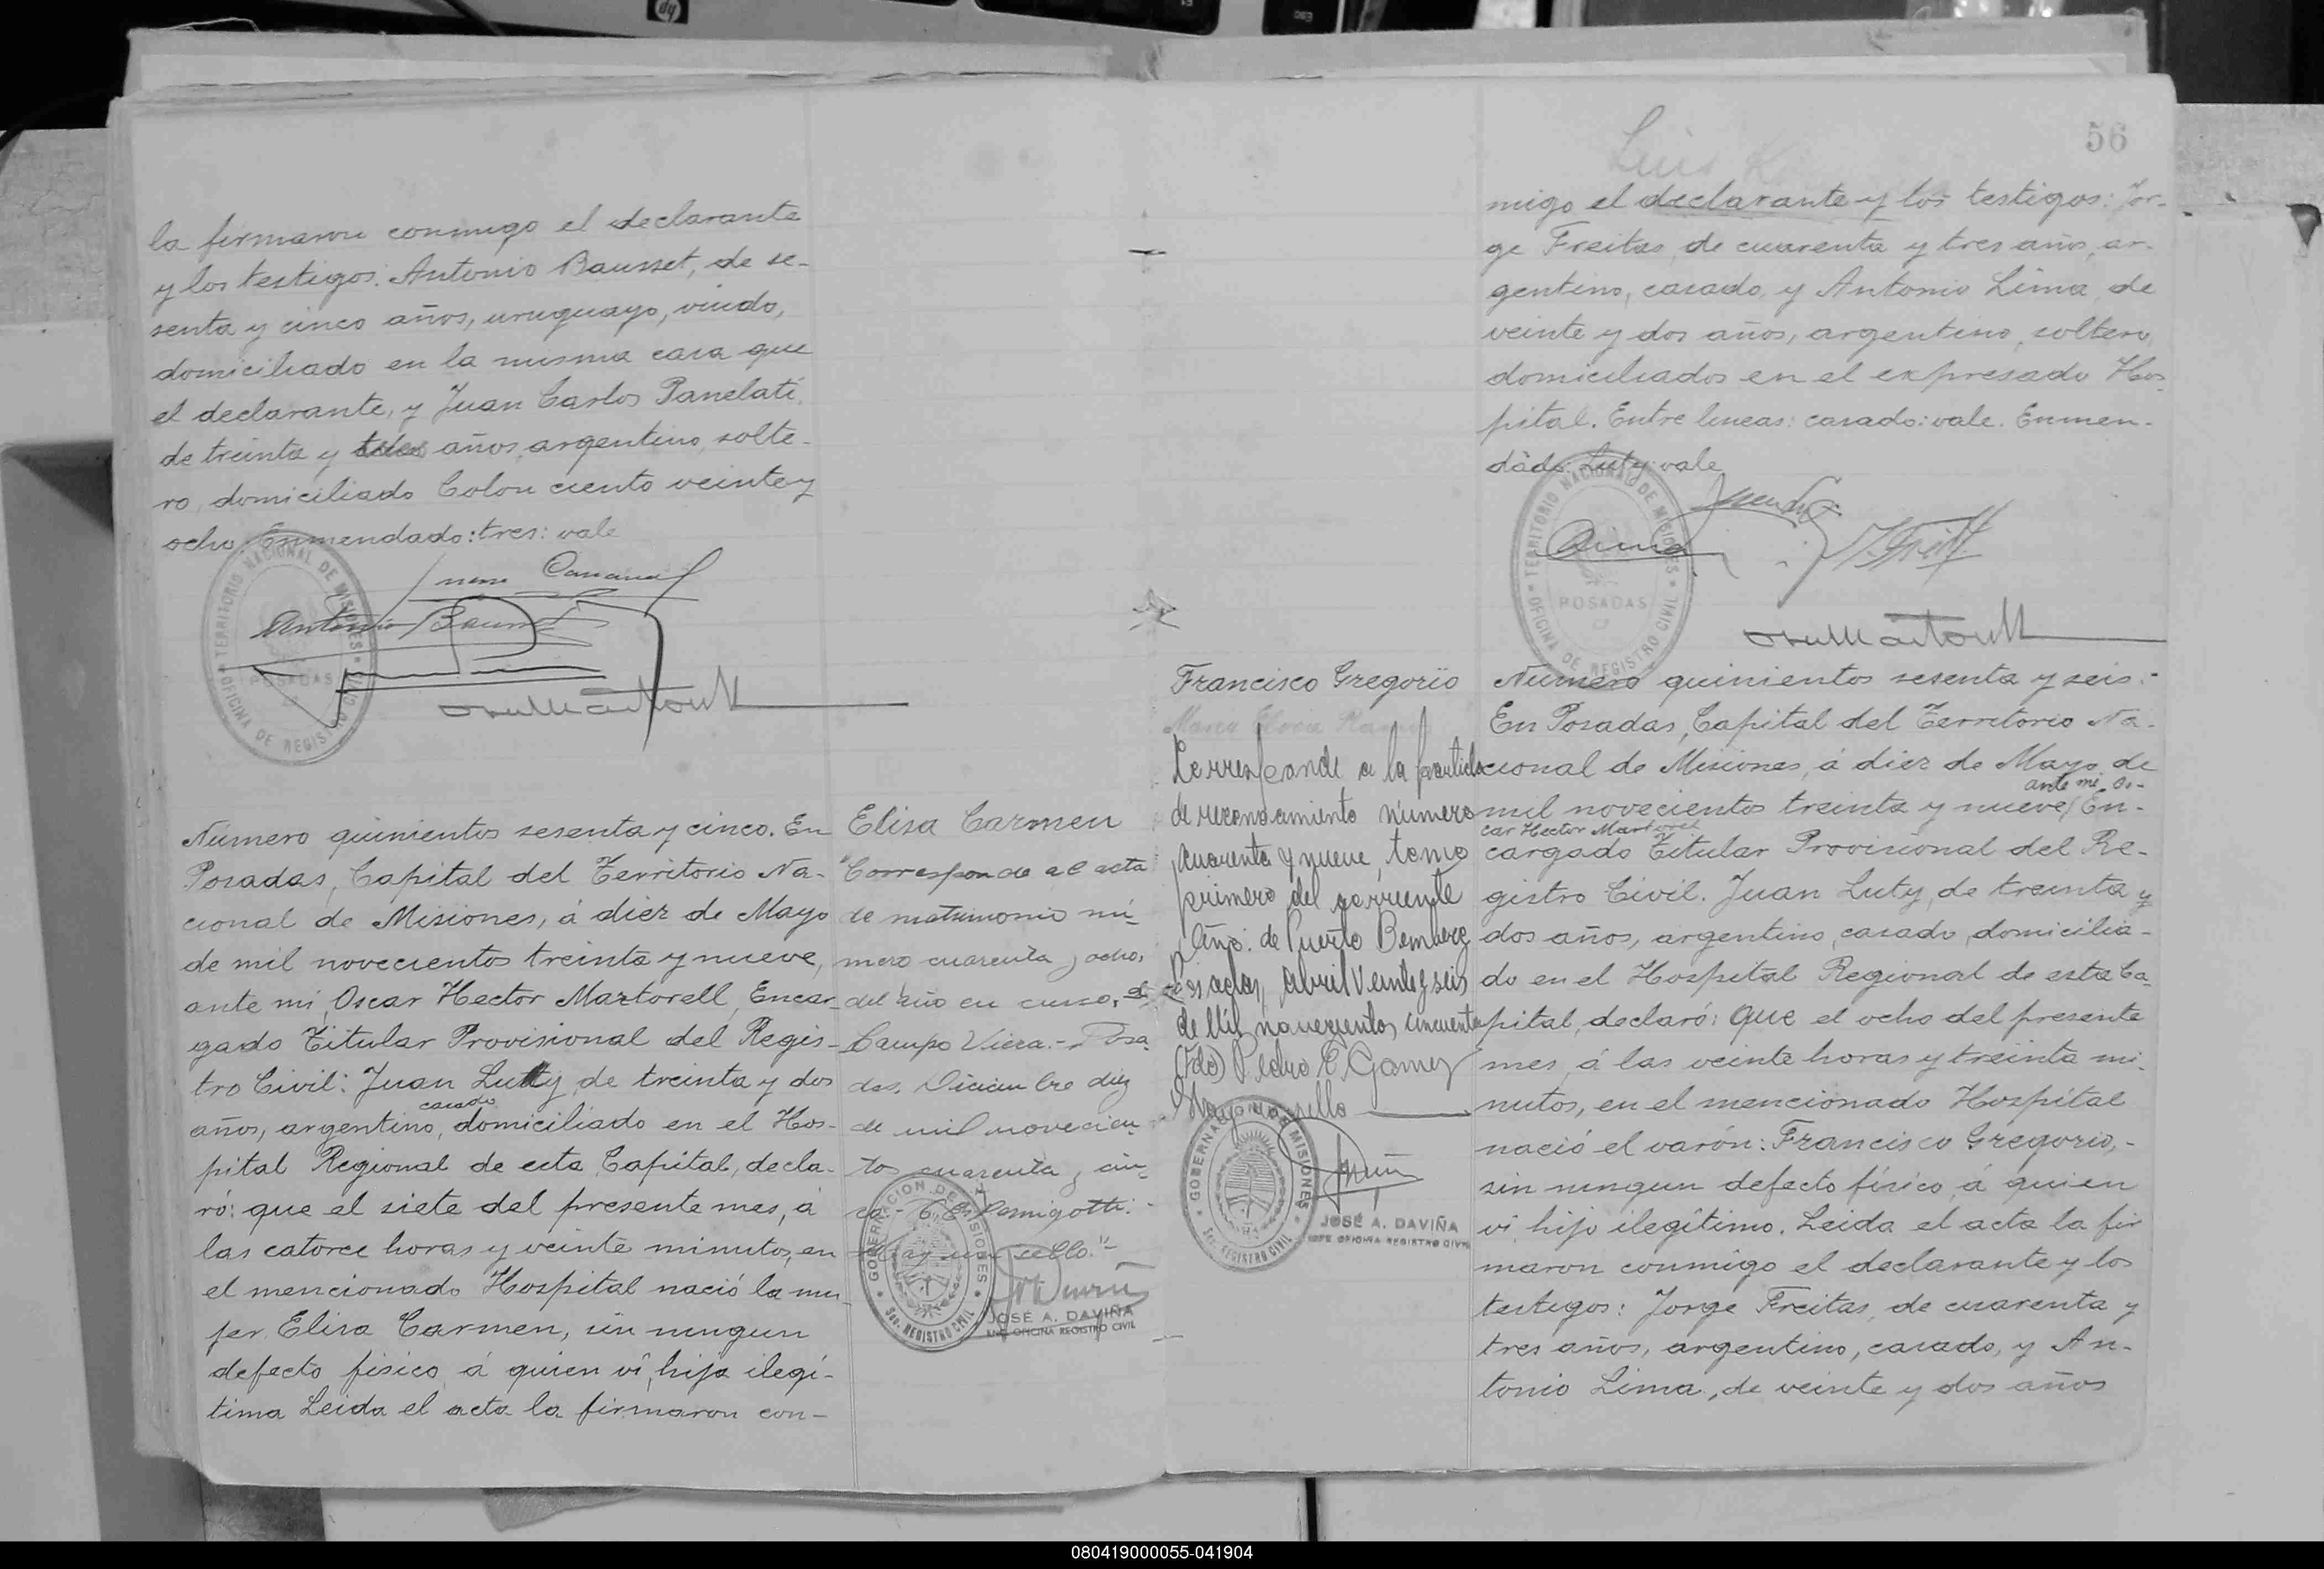 la firmaron conmigo el declarante
y los testigos: Antonio Bausset, de se-
senta y cinco años, uruguayo, viudo,
domiciliado en la misma casa que
el declarante, y Juan Carlos Panelati,
de treinta y tres años, argentino, solte-
ro, domiciliado Colon ciento veinte y
ocho. Enmendado: tres: vale
Antonio Bausset
TERRITORIO NACIONAL DE MISIONES
POSADAS
OFICINA DE REGISTRO CIVIL
Número quinientos sesenta y cinco. En
Posadas, Capital del Territorio Na-
cional de Misiones, á diez de Mayo
de mil novecientos treinta y nueve,
ante mi, Oscar Hector Martorell, Encar-
gado Titular Provisional del Regis-
tro Civil: Juan Luty, de treinta y dos
casado
años, argentino, domiciliado en el Hos-
pital Regional de esta Capital, decla-
ró: que el siete del presente mes, á
las catorce horas y veinte minutos, en
el mencionado Hospital nació la mu-
jer Elisa Carmen, sin ningun
defecto físico, á quien ví, hija ilegí-
tima Leida el acta la firmaron con-
Elisa Carmen
"Corresponde al acta
de matrimonio nú-
mero cuarenta y ocho,
del año en curso, de
Campo Viera.- Posa
das, Diciembre diez
de mil novecien-
tos cuarenta y cin-
co.- Pamigotti.-
Hay un sello."-
GOBERNACION DE MISIONES
Sec. REGISTRO CIVIL
JOSÉ A. DAVIÑA
ENC. OFICINA REGISTRO CIVIL
56
Luis
migo el declarante y los testigos: Jor-
ge Freitas, de cuarenta y tres años, ar-
gentino, casado, y Antonio Lima, de
veinte y dos años, argentino, soltero,
domiciliados en el expresado Hos-
pital. Entre lineas: casado: vale. Enmen-
dado: Luty: vale
TERRITORIO NACIONAL DE MISIONES
POSADAS
OFICINA DE REGISTRO CIVIL
Francisco Gregorio
Corresponde a la partida
de reconocimiento número
cuarenta y nueve, tomo
primero del corriente
Año: de Puerto Bemberg
Posadas, Abril Veinte y seis
de Mil novecientos cincuenta
(Fdo) Pedro E. Gomez
Hay un sello
GOBERNACION DE MISIONES
Sec. REGISTRO CIVIL
JOSÉ A. DAVIÑA
JEFE OFICINA REGISTRO CIVIL
Número quinientos sesenta y seis.-
En Posadas, Capital del Territorio Na-
cional de Misiones, á diez de Mayo de
ante mi, Os-
mil novecientos treinta y nueve, En-
car Hector Martorell
cargado Titular Provisional del Re-
gistro Civil. Juan Luty, de treinta y
dos años, argentino, casado, domicilia-
do en el Hospital Regional de esta Ca
pital, declaró: que el ocho del presente
mes, á las veinte horas y treinta mi-
nutos, en el mencionado Hospital
nació el varón: Francisco Gregorio,-
sin ningun defecto físico, á quien
ví, hijo ilegítimo. Leida el acta la fir
maron conmigo el declarante y los
testigos: Jorge Freitas, de cuarenta y
tres años, argentino, casado, y An-
tonio Lima, de veinte y dos años
080419000055-041904